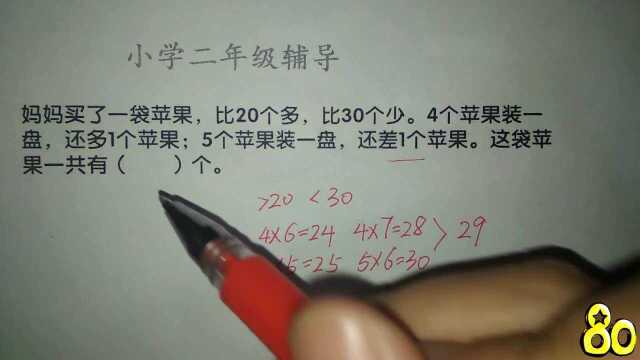 小学二年级辅导
妈妈买了一袋苹果，比20个多，比30个少。4个苹果装一
盘，还多1个苹果；5个苹果装一盘，还差1个苹果。这袋苹
果一共有（　　）个。
>20 <30
4×6=24 4×7=28 > 29
5=25 5×6=30
80